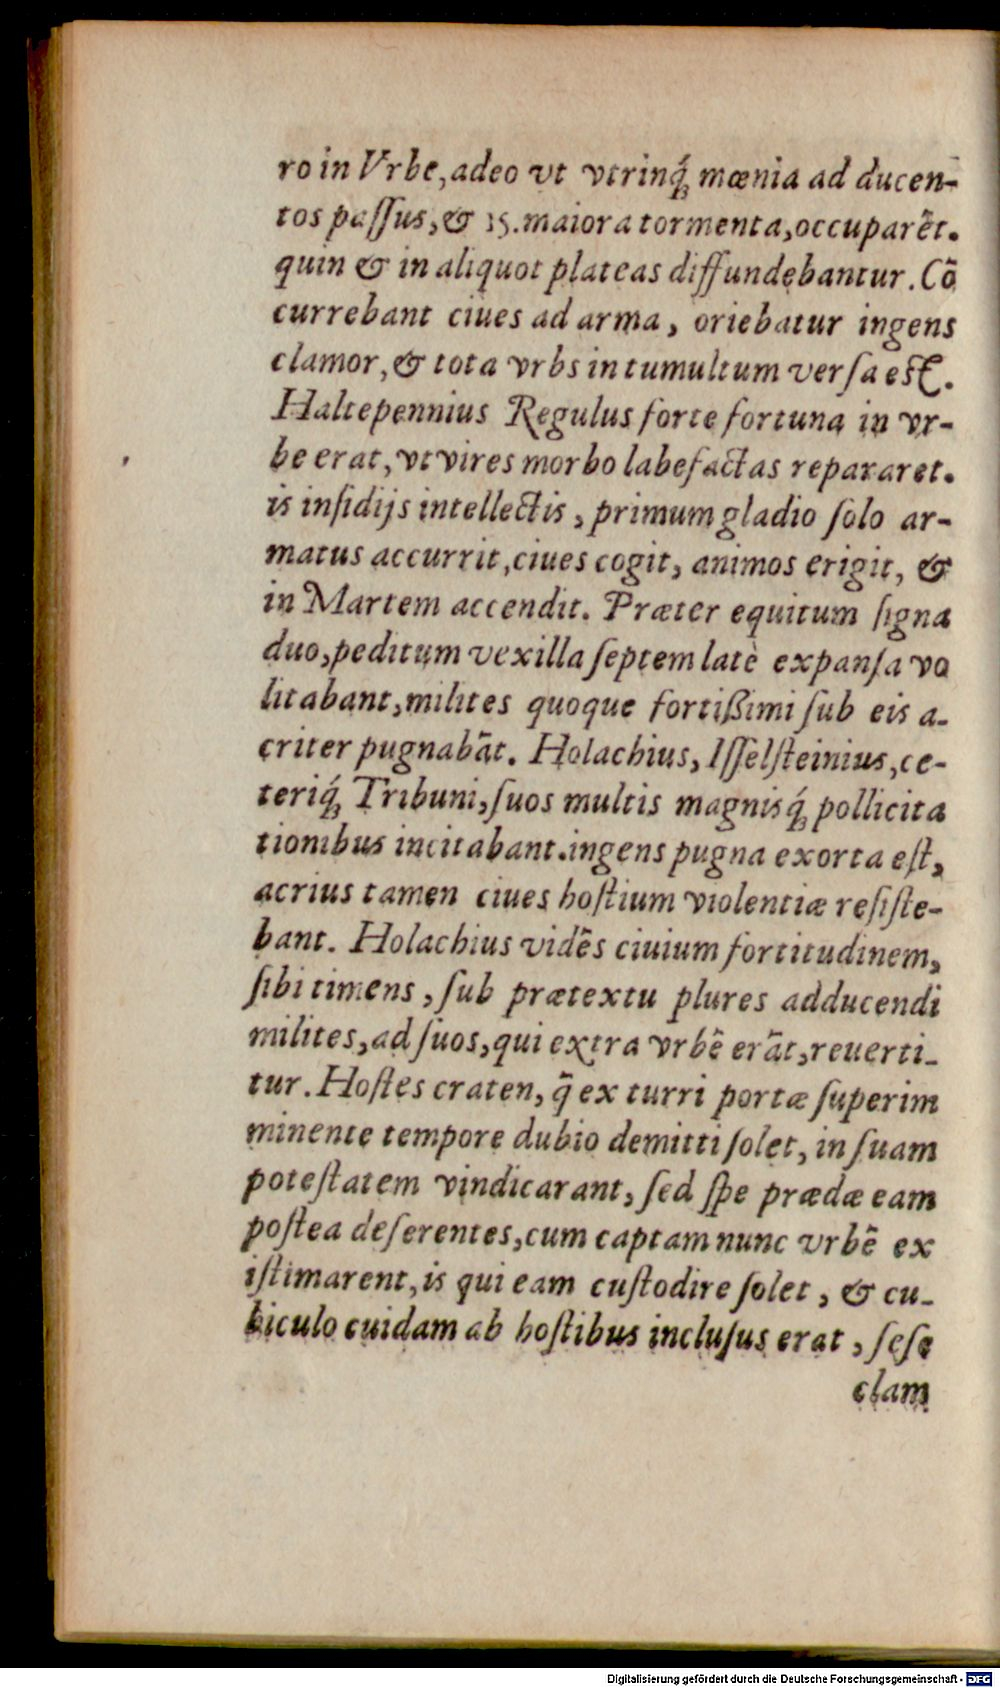 ro in Vrbe, adeo vt vtrinq́; mœnia ad ducen-
tos paſſus, & 35. maiora tormenta, occuparēt.
quin & in aliquot plateas diffundebantur. Cō
currebant ciues ad arma, oriebatur ingens
clamor, & tota vrbs in tumultum verſa eſt.
Haltepennius Regulus forte fortuna in vr-
be erat, vt vires morbo labefactas repararet.
is inſidijs intellectis, primum gladio ſolo ar-
matus accurrit, ciues cogit, animos erigit, &
in Martem accendit. Præter equitum ſigna
duo, peditum vexilla ſeptem latè expanſa vo
litabant, milites quoque fortißimi ſub eis a-
criter pugnabāt. Holachius, Iſſelſteinius, ce-
teriq́; Tribuni, ſuos multis magnisq́; pollicita
tionibus incitabant. ingens pugna exorta eſt,
acrius tamen ciues hoſtium violentiæ reſiſte-
bant. Holachius vidēs ciuium fortitudinem,
ſibi timens, ſub prætextu plures adducendi
milites, ad ſuos, qui extra vrbē erāt, reuerti-
tur. Hoſtes craten, q̄ ex turri portæ ſuperim
minente tempore dubio demitti ſolet, in ſuam
poteſtatem vindicarant, ſed ſpe prædæ eam
poſtea deſerentes, cum captam nunc vrbē ex
iſtimarent, is qui eam cuſtodire ſolet, & cu-
biculo cuidam ab hoſtibus incluſus erat, ſeſe
clam
Digitalisierung gefördert durch die Deutsche Forschungsgemeinschaft - DFG